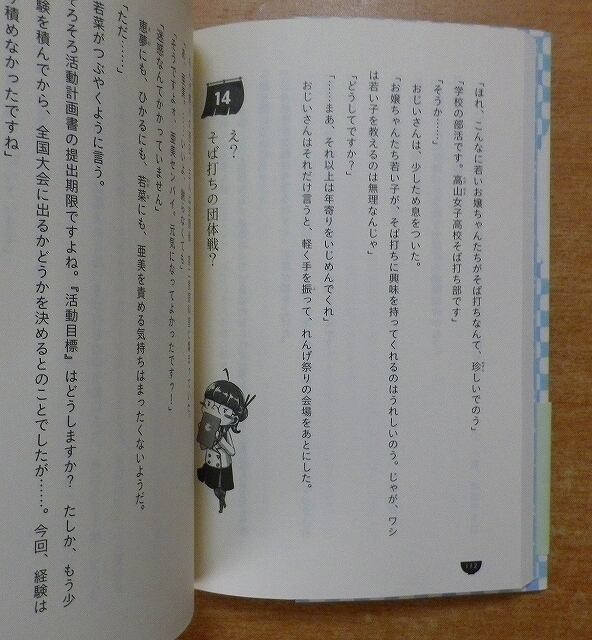 「ほれ、こんなに若いお嬢ちゃんたちがそば打ちなんて、珍しいでのう」
「学校の部活です。高山女子高校そば打ち部です」
「そうか……」
おじいさんは、少しため息をついた。
「お嬢ちゃんたち若い子が、そば打ちに興味を持ってくれるのはうれしいのう。じゃが、ワシ
は若い子を教えるのは無理なんじゃ」
「どうしてですか?」
「……まあ、それ以上は年寄りをいじめんでくれ」
おじいさんはそれだけ言うと、軽く手を振って、れんげ祭りの会場をあとにした。
14
え?
そば打ちの団体戦?
112
「そうですよォ、亜美センパイ。元気になってよかったですゥ!」
「迷惑なんてかかっていません」
恵夢にも、ひかるにも、若菜にも、亜美を責める気持ちはまったくないようだ。
「ただ……」
若菜がつぶやくように言う。
そろそろ活動計画書の提出期限ですよね。『活動目標』はどうしますか? たしか、もう少
験を積んでから、全国大会に出るかどうかを決めるとのことでしたが……。今回、経験は
積めなかったですね」